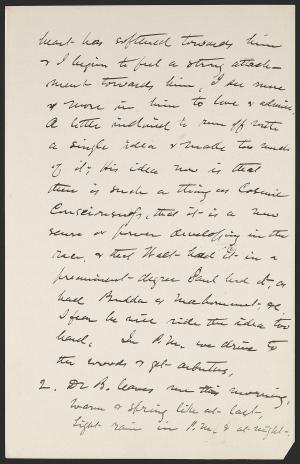 heart has softened towards him
& I begin to feel a strong attach-
ment towards him, I see more
& more in him to love & admire.
A little inclined to run off with
a single idea & make too much
of it; His idea now is that
there is such a thing as Cosmic
Consciousness, that it is a new
sense or power developing in the
race, & that Walt had it in a
preeminent degree Paul had it, as
had Budda & Mahommet, &c.
I fear he will ride the idea too
hard. In P.M. we drive to
the woods & get arbutus.
2. Dr B. leaves me this morning,
Warm & spring like at last,
Light rain in P.M. & at night.